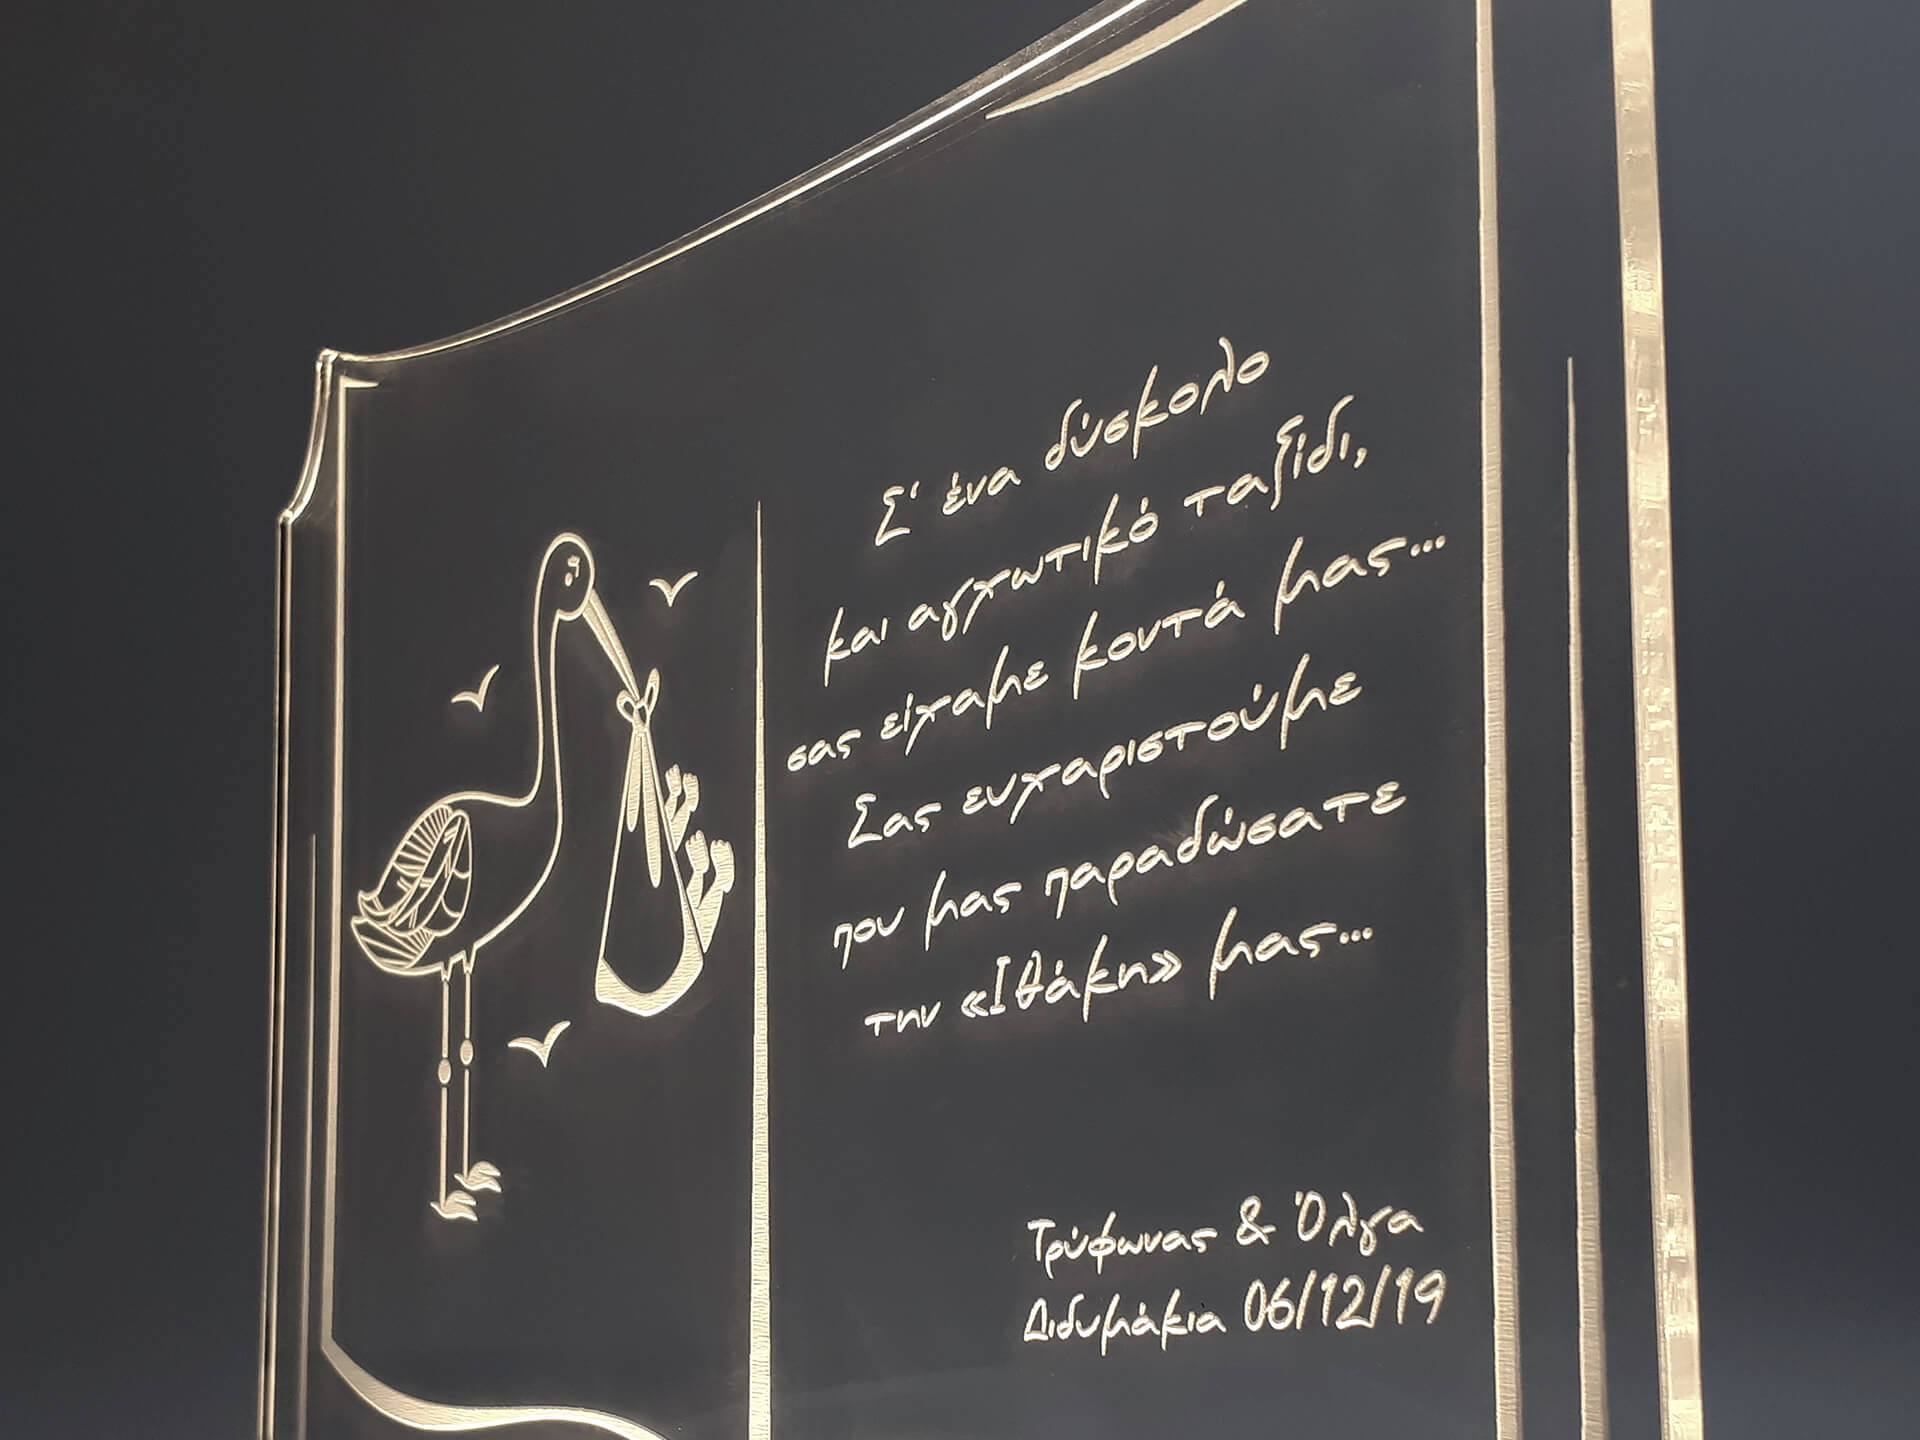 Σ' ένα δύσκολο
και αγχωτικό ταξίδι,
σας είχαμε κοντά μας...
Σας ευχαριστούμε
που μας παραδώσατε
την «Ιθάκη» μας...
Τρύφωνας & Όλγα
Διδυμάκια 06/12/19